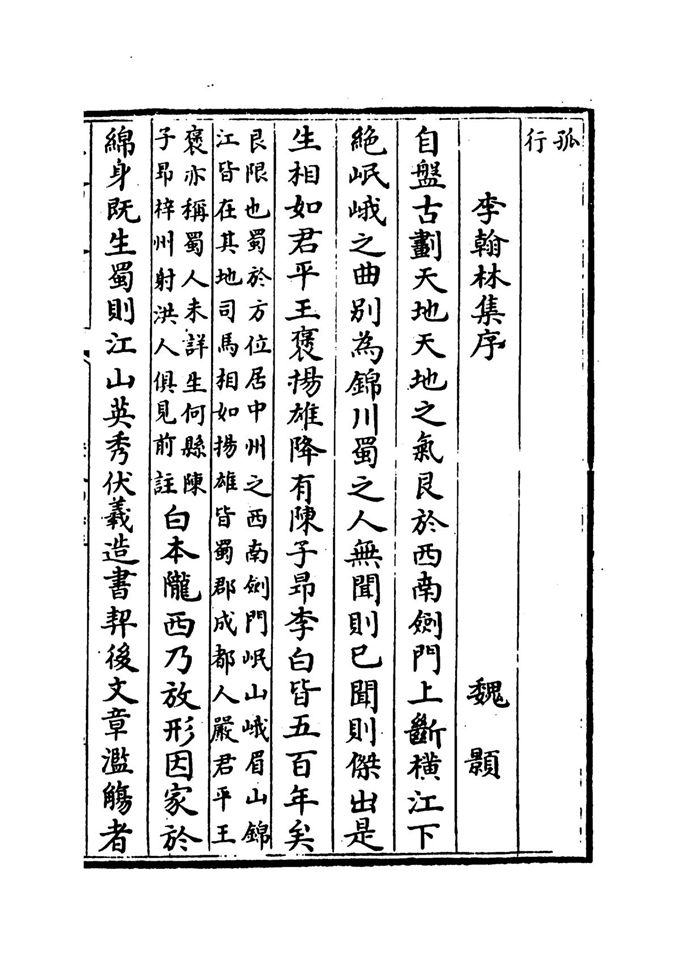 孤
行
李翰林集序 魏顥
自盤古劃天地天地之氣艮於西南劍門上斷橫江下
絶岷峨之曲别為錦川蜀之人無聞則已聞則傑出是
生相如君平王褒揚雄降有陳子昻李白皆五百年矣
艮限也蜀於方位居中州之西南劍門岷山峨眉山錦
江皆在其地司馬相如揚雄皆蜀郡成都人嚴君平王
褒亦稱蜀人未詳生何縣陳
子昻梓州射洪人俱見前註
白本隴西乃放形因家於
綿身既生蜀則江山英秀伏羲造書契後文章濫觴者